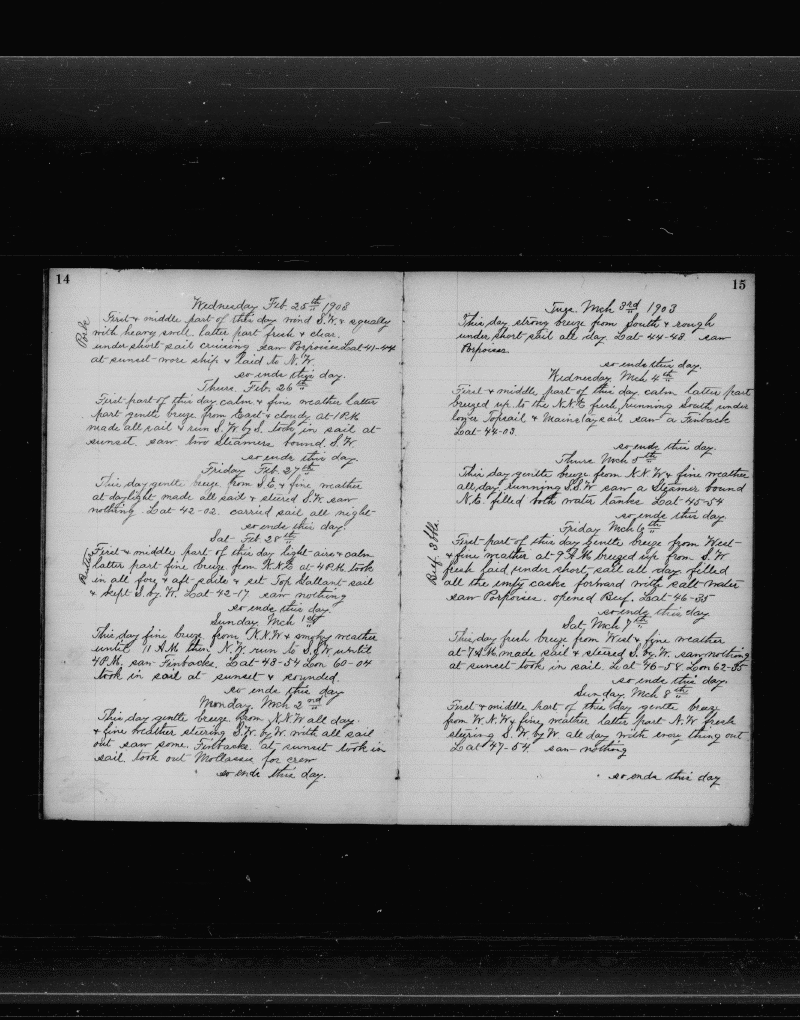 14
Wednesday Feb. 25th 1903
First & middle part of this day wind S.W. & squally
with heavy swell latter part fresh & clear.
under short sail cruising saw Porpoises Lat 41-44
at sunset wore ship & laid to N.W.
so ends this day.
Thurs. Feb. 26th
First part of this day calm & fine weather latter
part gentle breeze from East & cloudy at 1 P.M.
made all sail & run S.W by S. took in sail at
sunset. saw two Steamers bound. S.W
so ends this day.
Friday Feb. 27th
This day gentle breeze from S.E. & fine weather
at daylight made all sail & steered S.W. saw
nothing. Lat 42-02. carried sail all night
so ends this day.
Sat Feb 28th
First & middle part of this day light airs & calm
latter part fine breeze from N.N.E at 4 P.M. took
in all fore & aft sails & set Top Gallant sail
& kept S. by. W. Lat 42-17 saw nothing
so ends this day.
Sunday Mch 1st
This day fine breeze from N.N.W & smoky weather
until 11 A.M. then N.W. run to S.W until
4 P.M. saw Finbacks. Lat 43-54 Lon 60-04
took in sail at sunset & rounded.
so ends this day
Monday Mch 2nd
This day gentle breeze from N.N.W all day.
& fine weather steering S.W. by W. with all sail
out saw some Finbacks at sunset took in
sail. took out Mollasses for crew
so ends this day.
15
Tues Mch 3rd 1903
This day strong breeze from South & rough
under short sail all day. Lat 44-43 saw
Porpoises.
so ends this day.
Wednesday Mch 4th
First & middle part of this day calm latter part
breezed up to the N.N.E fresh running South under
lower Topsail & Mainstaysail saw a Finback
Lat 44-03
so ends this day.
Thurs Mch 5th
This day gentle breeze from N.N.W & fine weather
all day running S.S.W saw a Steamer bound
N.E. filled both water tanks Lat 45-54
so ends this day
Friday Mch 6th
Beef. 3 bbls.
First part of this day gentle breeze from West
& fine weather at 9 A.M breezed up from S.W
fresh laid under short sail all day. filled
all the empty casks forward with salt water
saw Porpoises. opened Beef. Lat 46-35
so ends this day
Sat, Mch 7th
This day fresh breeze from West & fine weather
at 7 A.M. made sail & steered S. by. W. saw nothing
at sunset took in sail. Lat 46-58 Lon 62-35
so ends this day.
Sunday Mch 8th
First & middle part of this day gentle breeze
from W.N.W & fine weather latter part N.W fresh
steering S.W. by W all day with every thing out
Lat 47-54. saw nothing
so ends this day